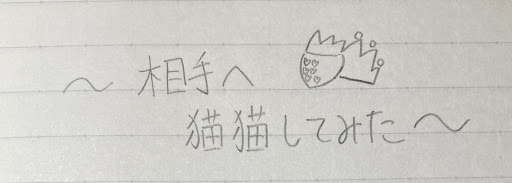 〜 相手へ
猫猫してみた〜